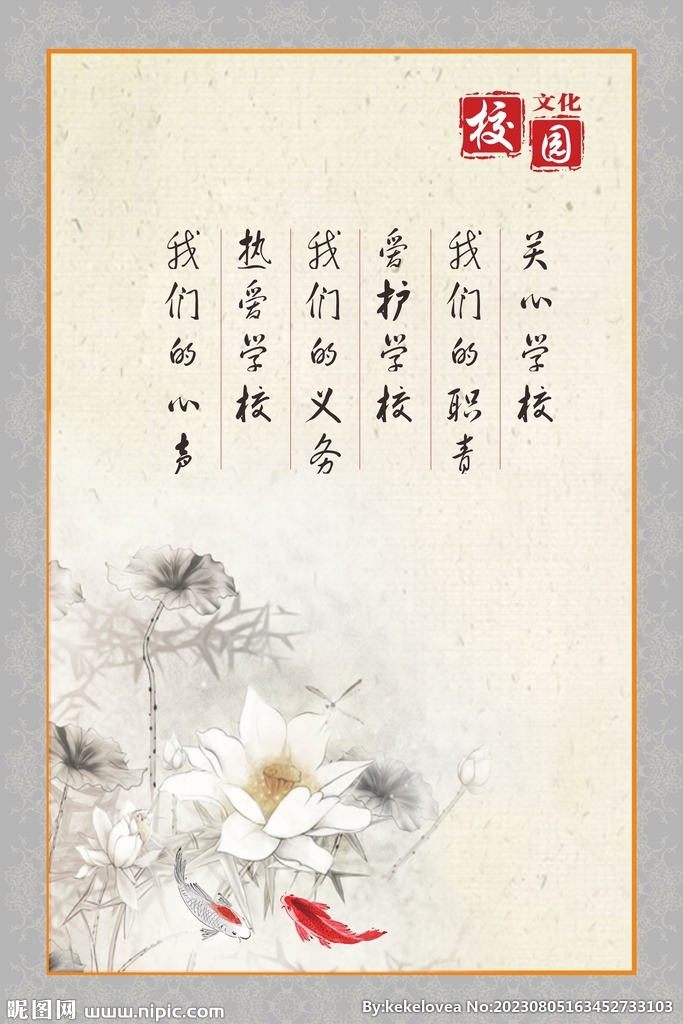 校园
文化
关心学校
我们的职青
爱护学校
我们的义务
热爱学校
我们的心声
昵图网 www.nipic.com
By:kekelovea No:20230805163452733103